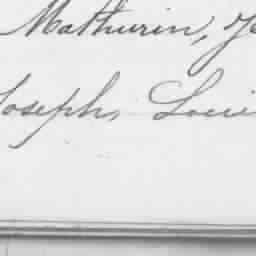 Mathurin,
Joseph, Loui